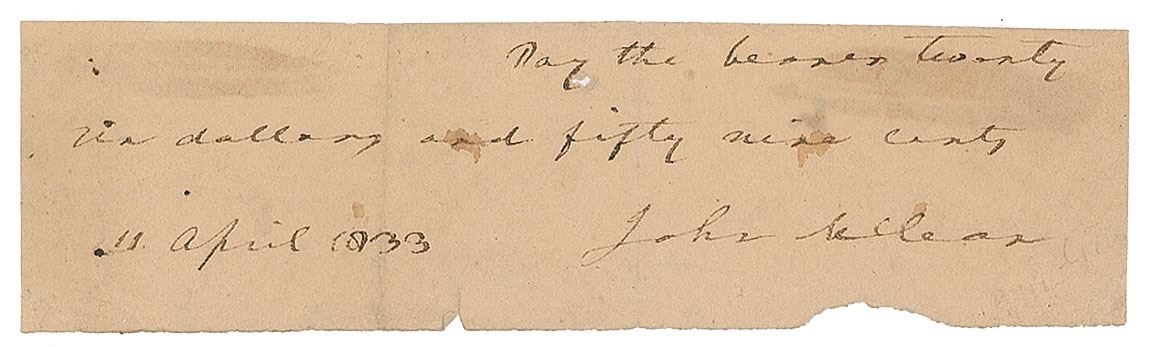 Pay the bearer twenty
six dollars and fifty nine cents
11 April 1833 John McLean